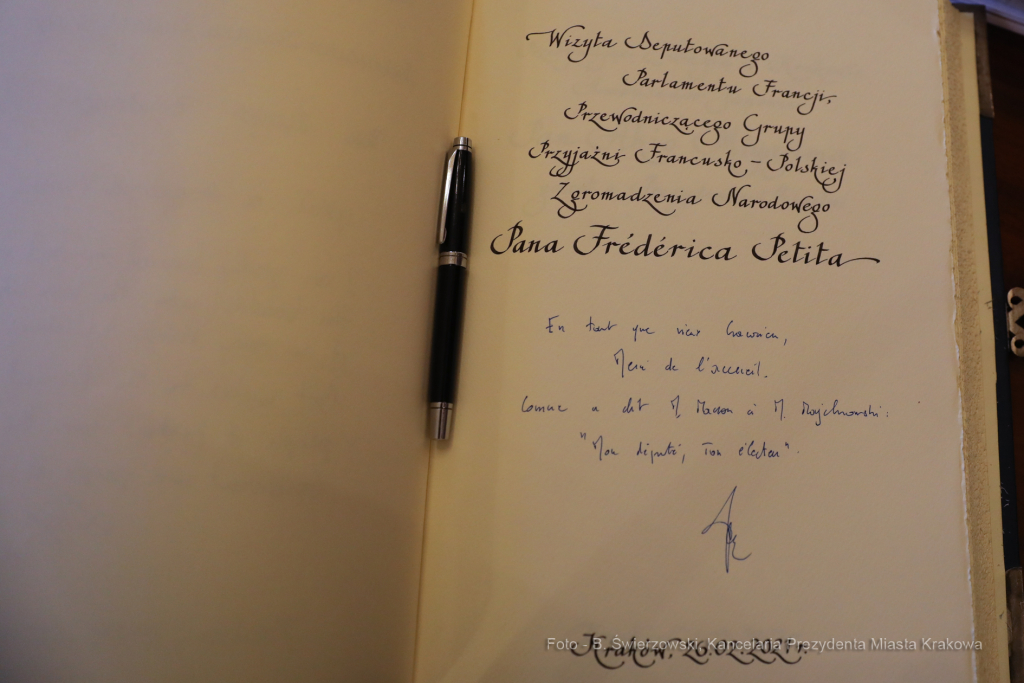 Wizyta Deputowanego
Parlamentu Francji,
Przewodniczącego Grupy
Przyjaźni Francusko - Polskiej
Zgromadzenia Narodowego
Pana Frédérica Petita
En tant que vieux
Merci de l'accueil.
Comme a dit M. à M. Majchrowski:
"Mon député, Ton électeur".
Kraków, 26.02.2021 r.
Foto - B. Świerzowski, Kancelaria Prezydenta Miasta Krakowa